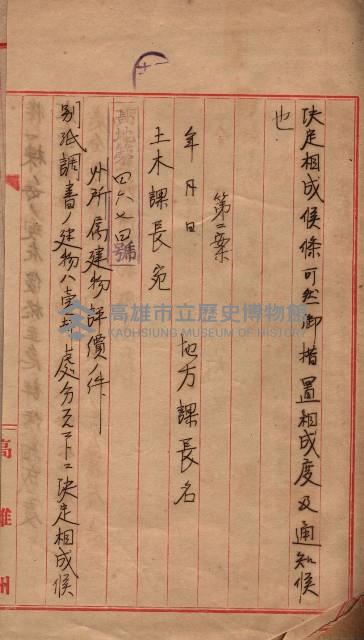 決定相成候條可然御措置相成度及通知候
也
第二案
年月日
土木課長宛 地方課長名
高地第四六七四號
外所屬建物評價ノ件
別紙調書ノ建物ハ
處分
決定相成候
高雄州
高雄市立歷史博物館
KAOHSIUNG MUSEUM OF HISTORY